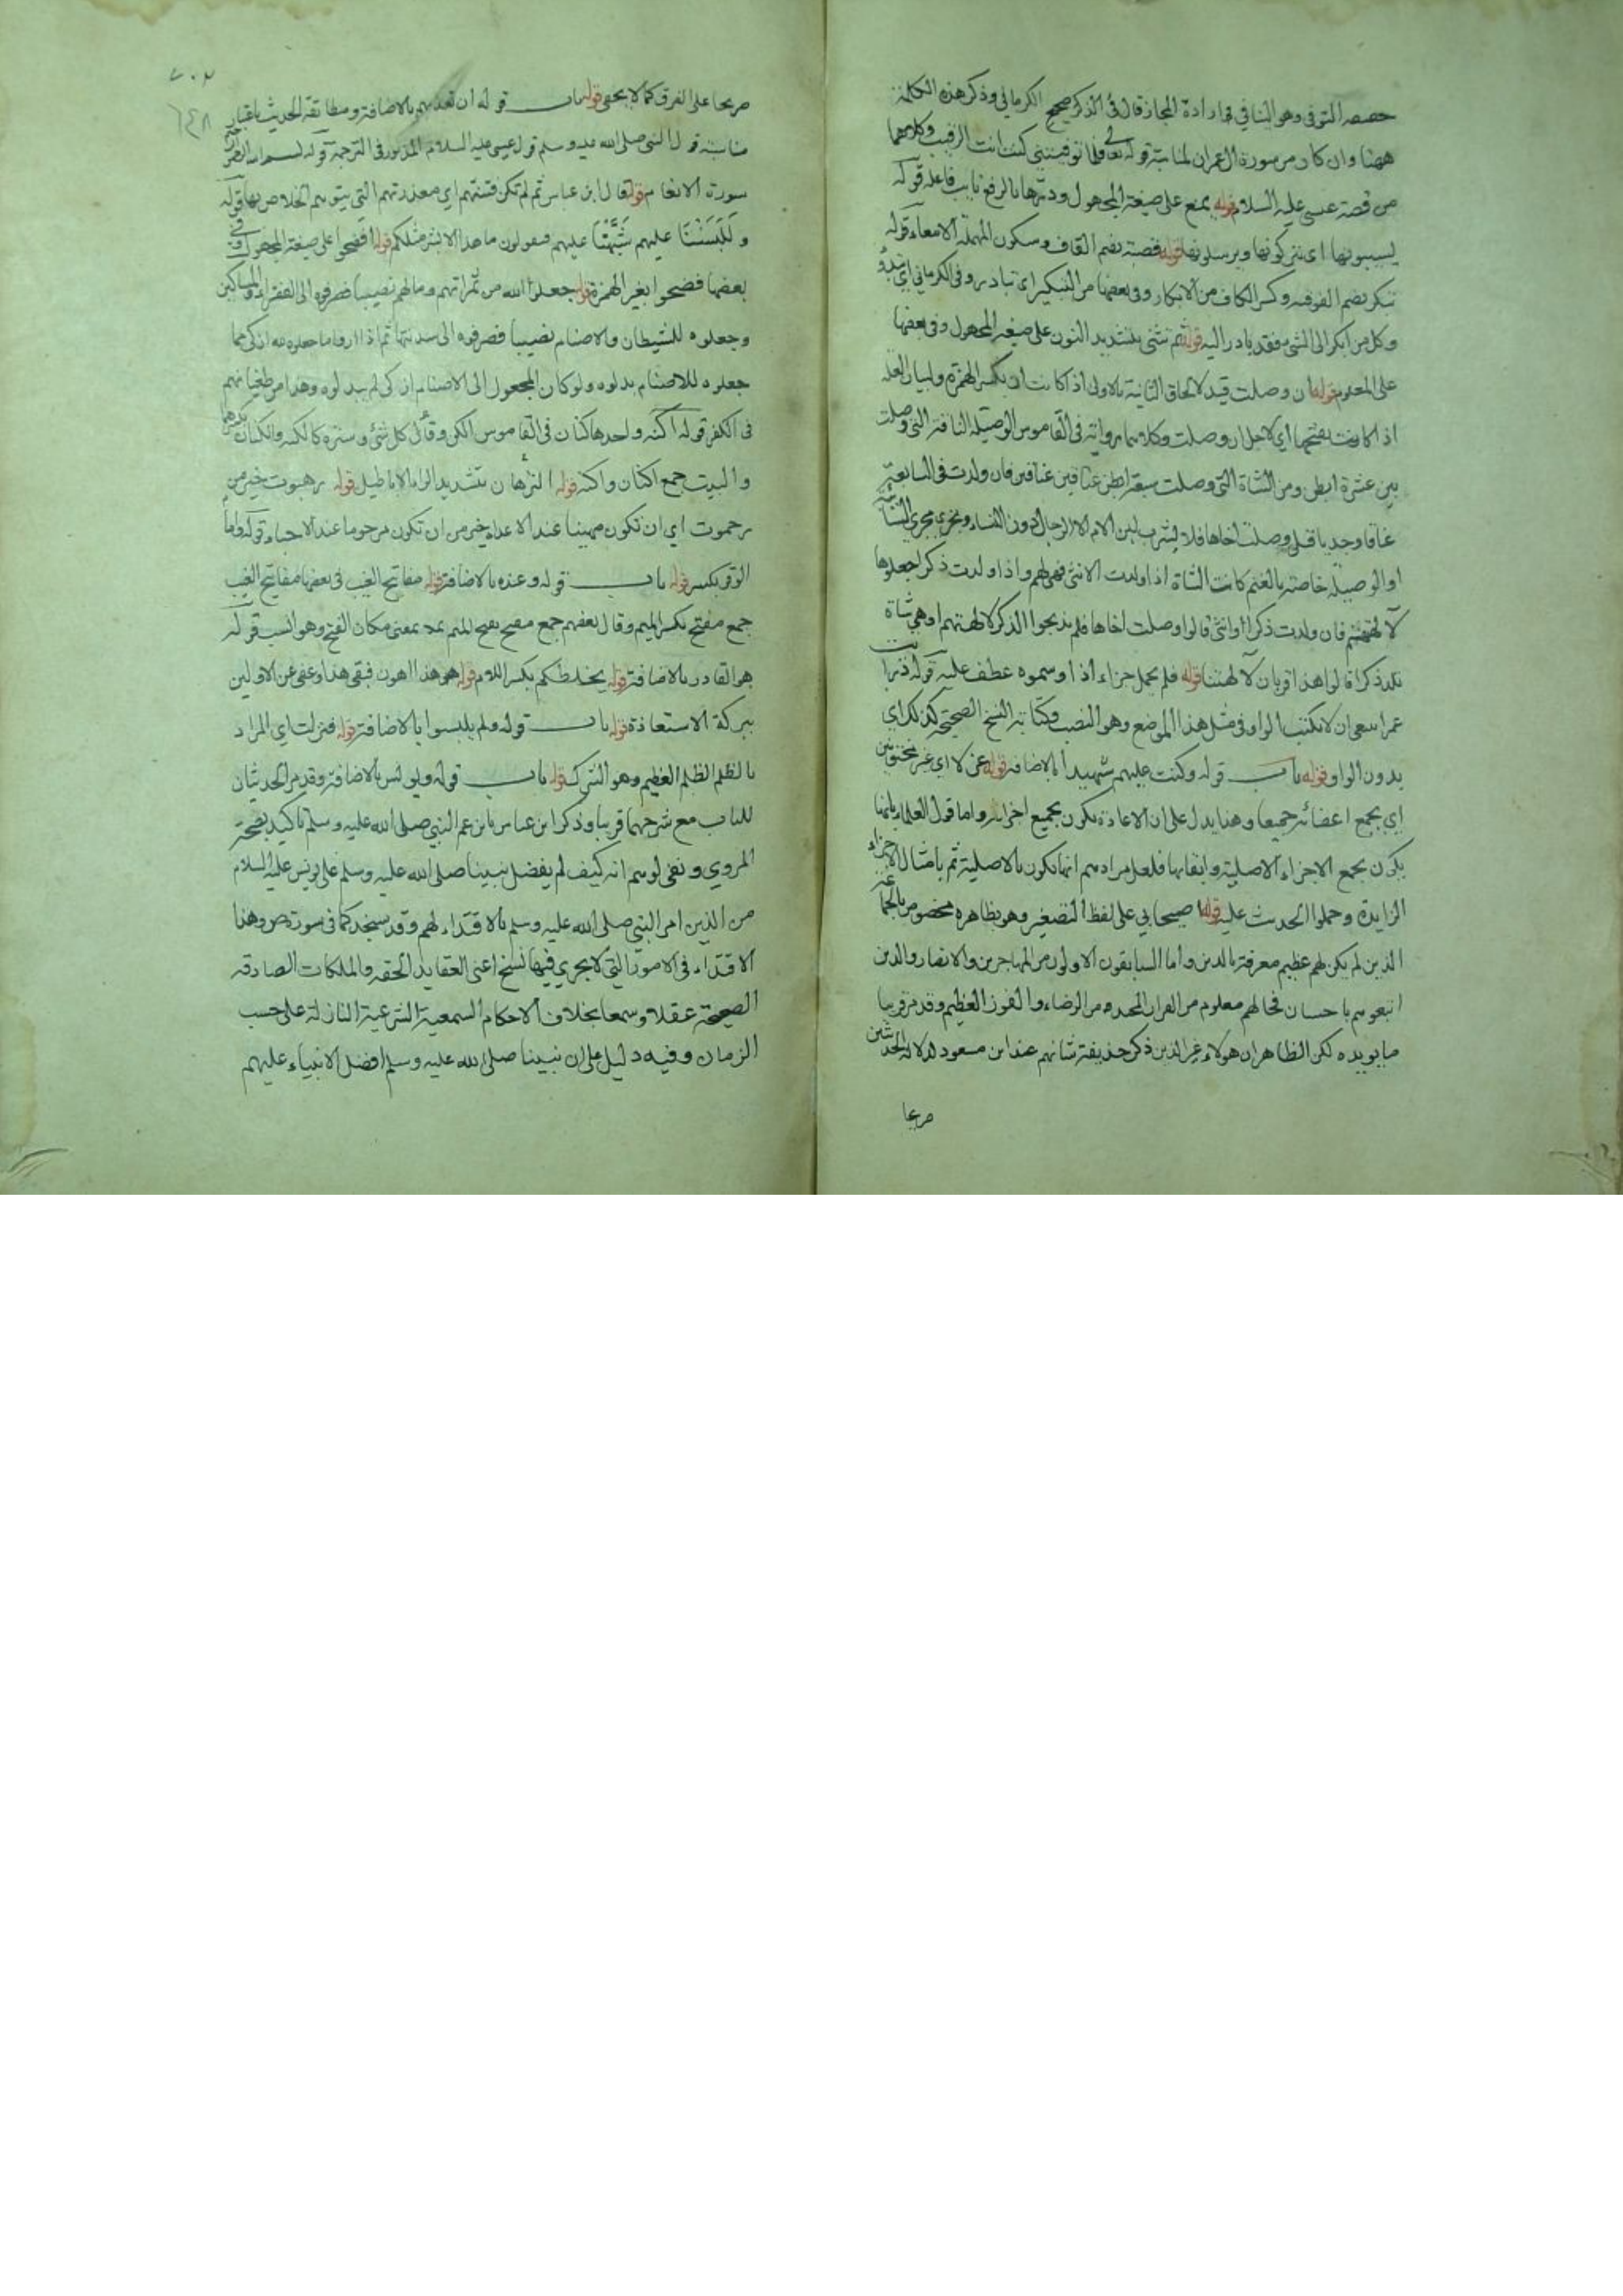 حصصه التوفى وهو البنافي فى ارادة المجاز قال فى الذكر صحح الكرماني وذكر هذه الكلمة
ههنا وان كان من سورة ال عمران لمناسبة قوله تعالى فلما توفيتنى كنت انت الرقيب وكلاهما
من قصة عيسى عليه السلام قوله يمنع على صيغة المجهول ودرها بالرفع نايب فاعله قوله
يسيبونها اى يتركونها ويرسلونها قوله قصبه بضم القاف وسكون المهملة الامعاء قوله
تبكر بضم الفوقية وكسر الكاف من الابكار وفى بعضها من التبكير اى تبادر وفى الكرماني اى تبدؤ
وكل من ابكر الى الشى فقد بادر اليه قوله ثم تثنى بتشديد النون على صيغة المجهول وفى بعضها
على المعلوم قوله ان وصلت قيد لالحاق الثانية بالاولى اذا كانت ان بكسر الهمزة ولبيان العلة
اذا كانت بفتحها اي لاجل ان وصلت وكلاهما رواية فى القاموس الوصيلة الناقة التى وصلت
بين عشرة ابطن ومن الشاة التى وصلت سبعة ابطن عناقين عناقين فان ولدت فى السابعة
عناقا وجديا قيل وصلت اخاها فلا يشرب لبن الام الا الرجال دون النساء وتجري مجرى السائبة
او الوصيلة خاصة بالغنم كانت الشاة اذا ولدت الانثى فهى لهم واذا ولدت ذكرا جعلوها
لآلهتهم فان ولدت ذكرا وانثى قالوا وصلت اخاها فلم يذبحوا الذكر لآلهتهم او هى شاة
تلد ذكرا قالوا هذا قربان لآلهتنا قوله فلم يحمل جزاء اذا وسموه عطف عليه قوله
عمرا ينبغى ان لا يكتب الواو فى مثل هذا الموضع وهو النصب وكتابة النسخ الصحيحة كذلك اي
بدون الواو قوله باب قوله وكنت عليهم شهيدا بالاضافة قوله غرلا اي غير مختونين
اي بجميع اعضائه جميعا وهذا يدل على ان الاعادة تكون بجميع اجزائه واما قول العلماء بانها
تكون بجمع الاجزاء الاصلية وابقائها فلعل مرادهم انها تكون بالاصلية ثم بامثال الاجزاء
الزايدة وحملوا الحديث عليه قوله اصيحابي على لفظ التصغير وهو بظاهره مخصوص
الذين لم يكن لهم عظيم معرفة بالدين واما السابقون الاولون من المهاجرين والانصار والذين
اتبعوهم باحسان فحالهم معلوم من القران المجيد ومن الرضاء والفوز العظيم وقد مر قريبا
ما يويده لكن الظاهر ان هولاء غير الذين ذكر حذيفة شانهم عند ابن مسعود لدلالة الحديثين
صريحا
٧٠٢
٦٤٨
صريحا على الفرق كما لا يخفى قوله باب قوله ان تعذبهم بالاضافة ومطابقة الحديث باعتبار
مناسبة قول النبى صلى الله عليه وسلم قول عيسى عليه السلام المذكور فى الترجمة قوله بسم الله الرحمن
سورة الانعام قوله قال ابن عباس ثم لم تكن فتنتهم اي معذرتهم التى يتوهم الخلاص بها قوله
وَلَلَبَسْنَا عليهم شَبَّهْنَا عليهم فيقولون ما هذا الا بشر مثلكم قوله افضحوا على صيغة المجهول وفى
بعضها فضحوا بغير الهمزة قوله جعلوا لله من ثمراتهم ومالهم نصيبا صرفوه الى الفقراء والمساكين
وجعلوه للشيطان والاصنام نصيبا فصرفوه الى سدنتها ثم اذا راوا ما جعلوه لله ازكى مما
جعلوه للاصنام بدلوه ولو كان المجعول الى الاصنام ازكى لم يبدلوه وهذا من طغيانهم
فى الكفر قوله اكنة واحدها كنان فى القاموس الكن وقاء كل شئ وستره كالكنة والكنان بكسرهما
والبيت جمع اكنان واكنة قوله الترهات بتشديد الراء الاباطيل قوله رهبوت خير من
رحموت اي ان تكون مهيبا عند الاعداء خير من ان تكون مرحوما عند الاحباء قوله واما
الوقر بكسر قوله باب قوله وعنده بالاضافة قوله مفاتح الغيب فى بعضها مفاتيح الغيب
جمع مفتح بكسر الميم وقال بعضهم جمع مفتح بفتح الميم بمعنى مكان الفتح وهو انسب قوله
هو القادر بالاضافة قوله يخلطكم بكسر اللام قوله هو هذا اهون فبقى هذا وعفى عن الاولين
ببركة الاستعاذة قوله باب قوله ولم يلبسوا بالاضافة قوله فنزلت اي المراد
بالظلم الظلم العظيم وهو الشرك قوله باب قوله ويونس بالاضافة وقد مر الحديثان
للباب مع شرحهما قريبا وذكر ابن عباس بابن عم النبي صلى الله عليه وسلم تاكيد لصحة
المروي ونفى لوهم انه كيف لم يفضل نبينا صلى الله عليه وسلم على يونس عليه السلام
من الذين امر النبى صلى الله عليه وسلم بالاقتداء لهم وقد سجد كما فى سورة ص وهذا
الاقتداء فى الامور التى لا يجري فيها نسخ اعنى العقايد الحقة والملكات الصادقة
الصحيحة عقلا وسمعا بخلاف الاحكام السمعية الشرعية النازلة على حسب
الزمان وفيه دليل على ان نبينا صلى الله عليه وسلم افضل الانبياء عليهم